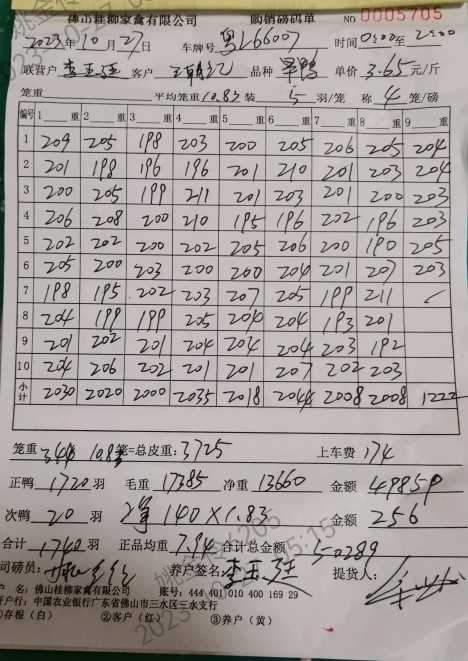 佛山桂柳家禽有限公司 购销磅码单 NO 0005705
2023年10月27日 车牌号 粤L66007 时间 0:00至2:00
联营户 李玉廷 客户 品种 旱鸭 单价 3.65元/斤
笼重 平均笼重10.83 装 5 羽/笼 称 4 笼/磅
编号 1 重 2 重 3 重 4 重 5 重 6 重 7 重 8 重 9 重
1 209 205 198 203 200 205 206 205 204
2 201 198 196 196 201 210 201 203 204
3 200 205 199 211 201 203 201 200 203
4 206 208 200 210 195 196 202 196 203
5 202 202 200 202 205 206 200 190 205
6 205 200 203 200 200 204 201 207 203
7 198 195 202 203 207 205 199 211
8 204 199 199 205 204 204 193 201
9 201 202 201 204 204 204 203 192
10 204 206 202 201 201 207 202 203
小计 2030 2020 2000 2035 2018 2044 2008 2008 1222
笼重 344 10.83 笼=总皮重:3725 上车费 174
正鸭 1720 羽 毛重 17385 净重 13660 金额 49859
次鸭 20 羽 净 140×1.83 金额 256
合计 1740 羽 正品均重 7.94 合计总金额 50289
司磅员: 养户签名: 李玉廷 提货人:
户 名: 佛山桂柳家禽有限公司 账号: 444 401 010 400 169 29
开户行: 中国农业银行广东省佛山市三水区三水支行
①存根(白) ②客户(红) ③养户(黄)